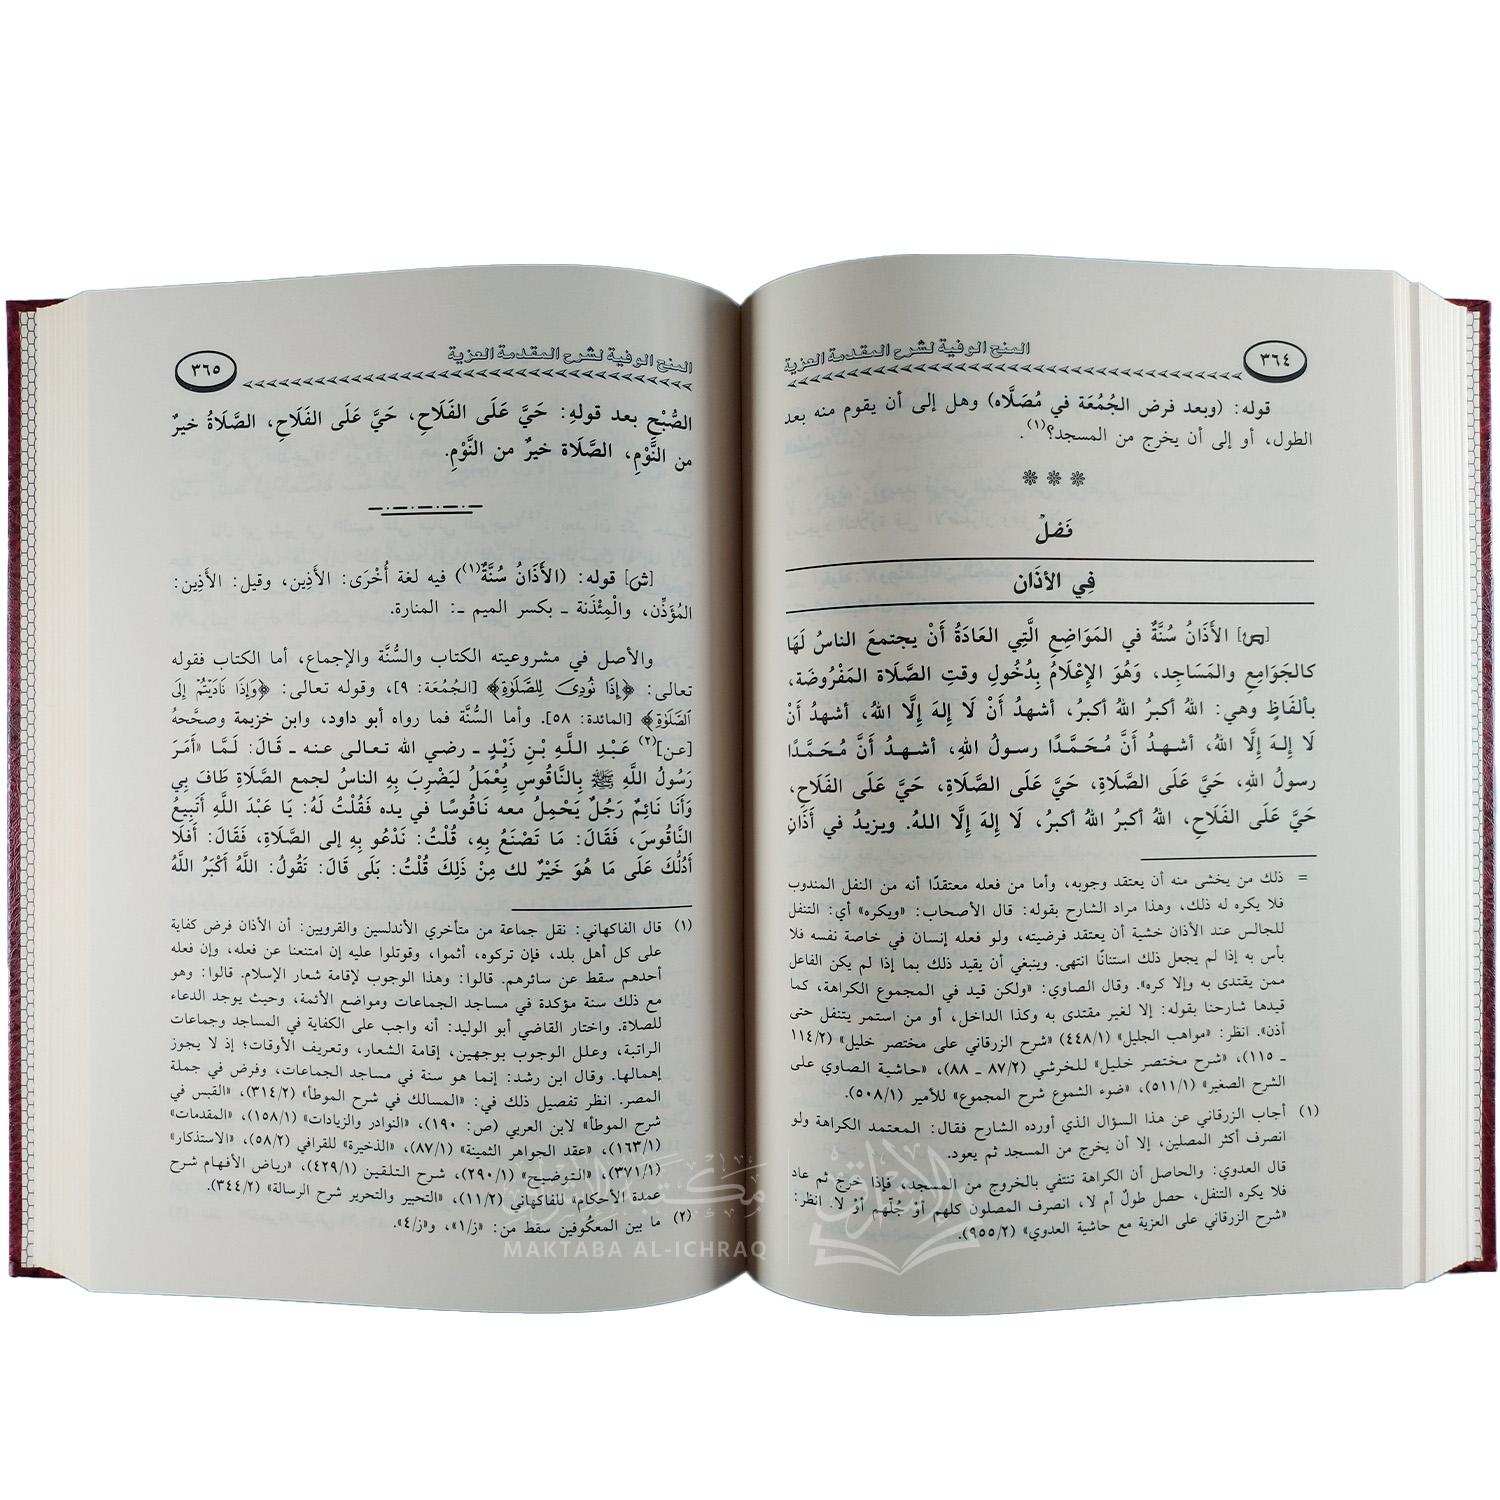 ٣٦٤
المنح الوفية لشرح المقدمة العزية
قوله: (وبعد فرض الجُمُعَة في مُصَلَّاه) وهل إلى أن يقوم منه بعد
الطول، أو إلى أن يخرج من المسجد؟(١).
فَصْلٌ
فِي الأذَان
[ص] الأَذَانُ سُنَّةٌ في المَوَاضِعِ الَّتِي العَادَةُ أَنْ يجتمعَ الناسُ لَهَا
كالجَوَامِعِ والمَسَاجِد، وَهُوَ الإِعْلَامُ بِدُخُولِ وقتِ الصَّلَاة المَفْرُوضَة،
بألفَاظٍ وهي: اللهُ أكبرُ اللهُ أكبرُ، أشهدُ أَنْ لَا إِلهَ إِلَّا اللهُ، أشهدُ أَنْ
لَا إِلهَ إِلَّا اللهُ، أشهدُ أَنَّ مُحَمَّدًا رسولُ اللهِ، أشهدُ أَنَّ مُحَمَّدًا
رسولُ اللهِ، حَيَّ عَلَى الصَّلَاةِ، حَيَّ عَلَى الصَّلَاةِ، حَيَّ عَلَى الفَلَاحِ،
حَيَّ عَلَى الفَلَاحِ، اللهُ أكبرُ اللهُ أكبرُ، لَا إِلهَ إِلَّا اللهُ. ويزيدُ في أَذَانِ
= ذلك من يخشى منه أن يعتقد وجوبه، وأما من فعله معتقدًا أنه من النفل المندوب
فلا يكره له ذلك، وهذا مراد الشارح بقوله: قال الأصحاب: «ويكره» أي: التنفل
للجالس عند الأذان خشية أن يعتقد فرضيته، ولو فعله إنسان في خاصة نفسه فلا
بأس به إذا لم يجعل ذلك استنانًا انتهى. وينبغي أن يقيد ذلك بما إذا لم يكن الفاعل
ممن يقتدى به وإلا كره». وقال الصاوي: «ولكن قيد في المجموع الكراهة، كما
قيدها شارحنا بقوله: إلا لغير مقتدى به وكذا الداخل، أو من استمر يتنفل حتى
أذن». انظر: «مواهب الجليل» (٤٤٨/١) «شرح الزرقاني على مختصر خليل» (١١٤/٢
ـ ١١٥)، «شرح مختصر خليل» للخرشي (٨٧/٢ ـ ٨٨)، «حاشية الصاوي على
الشرح الصغير» (٥١١/١)، «ضوء الشموع شرح المجموع» للأمير (٥٠٨/١).
(١) أجاب الزرقاني عن هذا السؤال الذي أورده الشارح فقال: المعتمد الكراهة ولو
انصرف أكثر المصلين، إلا أن يخرج من المسجد ثم يعود.
قال العدوي: والحاصل أن الكراهة تنتفي بالخروج من المسجد، فإذا خرج ثم عاد
فلا يكره التنفل، حصل طولٌ أم لا، انصرف المصلون كلهم أو جُلّهم أوْ لا. انظر:
«شرح الزرقاني على العزية مع حاشية العدوي» (٩٥٥/٢).
المنح الوفية لشرح المقدمة العزية
٣٦٥
الصُّبْحِ بعد قولهِ: حَيَّ عَلَى الفَلَاحِ، حَيَّ عَلَى الفَلَاحِ، الصَّلَاةُ خيرٌ
من النَّوْمِ، الصَّلَاة خيرٌ من النَّوْمِ.
[ش] قوله: (الأَذَانُ سُنَّةٌ(١)) فيه لغة أُخْرَى: الأَذِين، وقيل: الأَذِين:
المُؤَذِّن، والْمِئْذَنة ـ بكسر الميم ـ: المنارة.
والأصل في مشروعيته الكتاب والسُّنَّة والإجماع، أما الكتاب فقوله
تعالى: ﴿إِذَا نُودِيَ لِلصَّلَوٰةِ﴾ [الجُمُعَة: ٩]، وقوله تعالى: ﴿وَإِذَا نَادَيْتُمْ إِلَى
الصَّلَوٰةِ﴾ [المائدة: ٥٨]. وأما السُّنَّة فما رواه أبو داود، وابن خزيمة وصحَّحهُ
[عن](٢) عَبْدِ اللَّهِ بْنِ زَيْدٍ ـ رضي الله تعالى عنه ـ قَالَ: لَمَّا «أَمَرَ
رَسُولُ اللَّهِ ﷺ بِالنَّاقُوسِ يُعْمَلُ لِيَضْرِبَ بِهِ الناسُ لجمع الصَّلَاةِ طَافَ بِي
وَأَنَا نَائِمٌ رَجُلٌ يَحْمِلُ معه نَاقُوسًا في يده فَقُلْتُ لَهُ: يَا عَبْدَ اللَّهِ أَتَبِيعُ
النَّاقُوسَ، فَقَالَ: مَا تَصْنَعُ بِهِ، قُلْتُ: نَدْعُو بِهِ إلى الصَّلَاةِ، فَقَالَ: أَفَلَا
أَدُلُّكَ عَلَى مَا هُوَ خَيْرٌ لك مِنْ ذَلِكَ قُلْتُ: بَلَى قَالَ: تَقُولُ: اللَّهُ أَكْبَرُ اللَّهُ
(١) قال الفاكهاني: نقل جماعة من متأخري الأندلسين والقرويين: أن الأذان فرض كفاية
على كل أهل بلد، فإن تركوه، أثموا، وقوتلوا عليه إن امتنعنا عن فعله، وإن فعله
أحدهم سقط عن سائرهم. قالوا: وهذا الوجوب لإقامة شعار الإسلام. قالوا: وهو
مع ذلك سنة مؤكدة في مساجد الجماعات ومواضع الأئمة، وحيث يوجد الدعاء
للصلاة. واختار القاضي أبو الوليد: أنه واجب على الكفاية في المساجد وجماعات
الراتبة، وعلل الوجوب بوجهين، إقامة الشعار، وتعريف الأوقات؛ إذ لا يجوز
إهمالها. وقال ابن رشد: إنما هو سنة في مساجد الجماعات، وفرض في جملة
المصر. انظر تفصيل ذلك في: «المسالك في شرح الموطأ» (٣١٤/٢)، «القبس في
شرح الموطأ» لابن العربي (ص: ١٩٠)، «النوادر والزيادات» (١٥٨/١)، «المقدمات»
(١٦٣/١)، «عقد الجواهر الثمينة» (٨٧/١)، «الذخيرة» للقرافي (٥٨/٢)، «الاستذكار»
(٣٧١/١)، «التوضيح» (٢٩٠/١)، شرح التلقين (٤٢٩/١)، «رياض الأفهام شرح
عمدة الأحكام» للفاكهاني (١١/٢)، «التحبير والتحرير شرح الرسالة» (٣٤٤/٢).
(٢) ما بين المعكُوفين سقط من: «ز/١»، و«ز/٤».
مكتبة الإشراق
MAKTABA AL-ICHRAQ
الإشراق